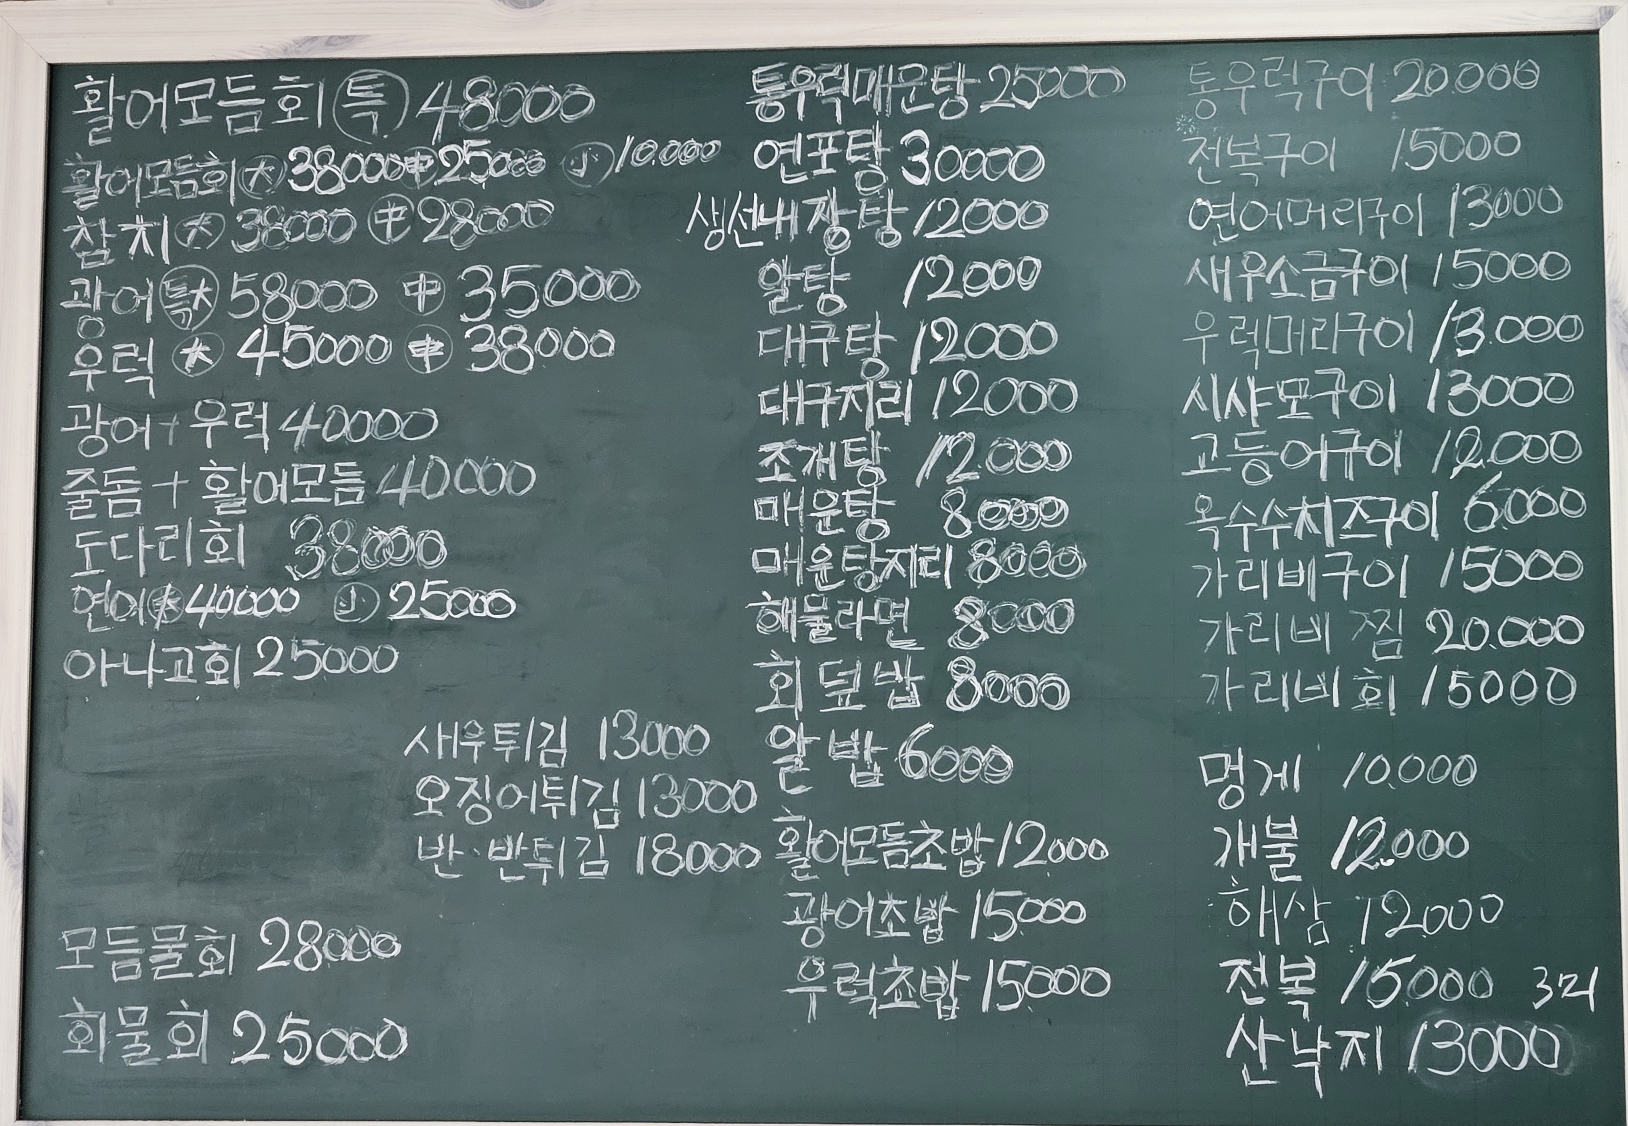 활어모듬회 (특) 48000
활어모듬회 (大) 38000 (中) 25000 (小) 10.000
참치 (大) 38000 (中) 28000
광어 (특大) 58000 (中) 35000
우럭 (大) 45000 (中) 38000
광어+우럭 40000
줄돔+활어모듬 40.000
도다리회 38000
연어 (大) 40000 (小) 25000
아나고회 25000
새우튀김 13000
오징어튀김 13000
반·반튀김 18000
모듬물회 28000
회물회 25000
통우럭매운탕 25000
연포탕 30000
생선내장탕 12000
알탕 12000
대구탕 12000
대구지리 12000
조개탕 12.000
매운탕 8000
매운탕지리 8000
해물라면 8000
회덮밥 8000
알밥 6000
활어모듬초밥 12000
광어초밥 15000
우럭초밥 15000
통우럭구이 20.000
전복구이 15000
연어머리구이 13000
새우소금구이 15000
우럭머리구이 13.000
시샤모구이 13000
고등어구이 12.000
옥수수치즈구이 6.000
가리비구이 15000
가리비찜 20.000
가리비회 15000
멍게 10.000
개불 12.000
해삼 12000
전복 15000 3미
산낙지 13000